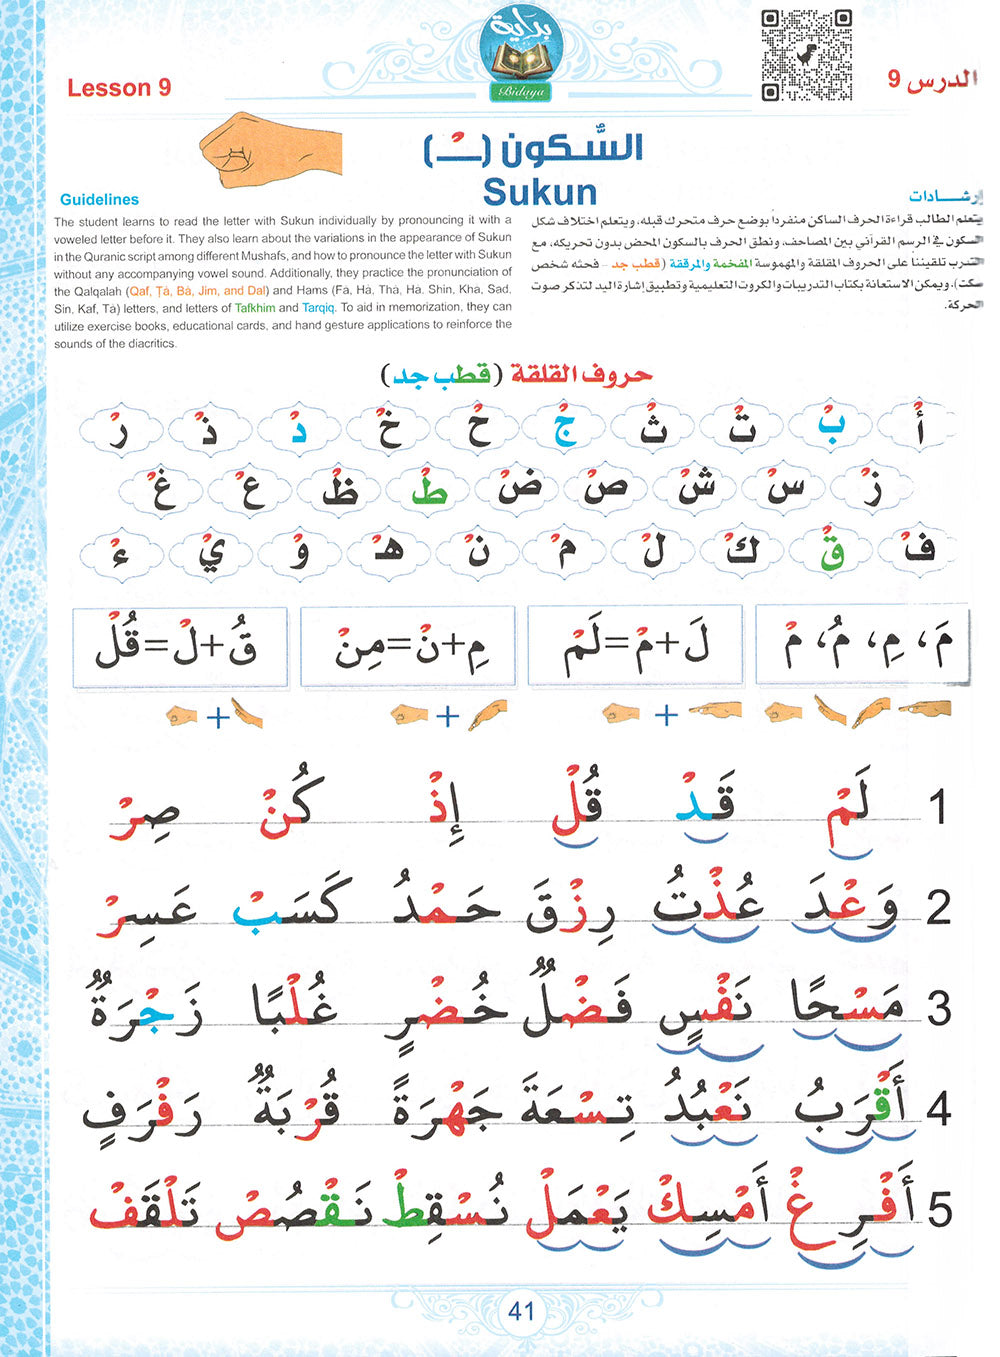 بداية
Bidaya
Lesson 9
الدرس 9
السُّكون (ـْـ)
Sukun
Guidelines
The student learns to read the letter with Sukun individually by pronouncing it with a
voweled letter before it. They also learn about the variations in the appearance of Sukun
in the Quranic script among different Mushafs, and how to pronounce the letter with Sukun
without any accompanying vowel sound. Additionally, they practice the pronunciation of
the Qalqalah (Qaf, Ṭā, Bā, Jim, and Dal) and Hams (Fa, Ha, Tha, Ha, Shin, Kha, Sad,
Sin, Kaf, Ta) letters, and letters of Tafkhim and Tarqiq. To aid in memorization, they can
utilize exercise books, educational cards, and hand gesture applications to reinforce the
sounds of the diacritics.
إرشـــادات
يتعلم الطالب قراءة الحرف الساكن منفرداً بوضع حرف متحرك قبله، ويتعلم اختلاف شكل
السكون في الرسم القرآني بين المصاحف، ونطق الحرف بالسكون المحض بدون تحريكه، مع
التدرب تلقينناً على الحروف المقلقة والمهموسة المفخمة والمرققة (قطب جد – فحثه شخص
سكت). ويمكن الاستعانة بكتاب التدريبات والكروت التعليمية وتطبيق إشارة اليد لتذكر صوت
الحركة.
حروف القلقة (قطب جد)
أْ بْ تْ ثْ جْ حْ خْ دْ ذْ رْ
زْ سْ شْ صْ ضْ طْ ظْ عْ غْ
فْ قْ كْ لْ مْ نْ هْـ وْ يْ ءْ
مَ، مِ، مُ، مْ
لَ+مْ=لَمْ
مِ+نْ=مِنْ
قُ+لْ=قُلْ
+ + +
1 لَمْ قَدْ قُلْ إِذْ كُنْ صِرْ
2 وَعْدَ عُذْتُ رِزْقَ حَمْدُ كَسَبْ عَسِرْ
3 مَسْحًا نَفْسٍ فَضْلٌ خُضْرٍ غُلْبًا زَجْرَةٌ
4 أَقْرَبُ نَعْبُدُ تِسْعَةَ جَهْرَةً قُرْبَةٌ رَفْرَفٍ
5 أَفْرِغْ أَمْسِكْ يَعْمَلْ نُسْقِطْ نَقْصُصْ تَلْقَفْ
41